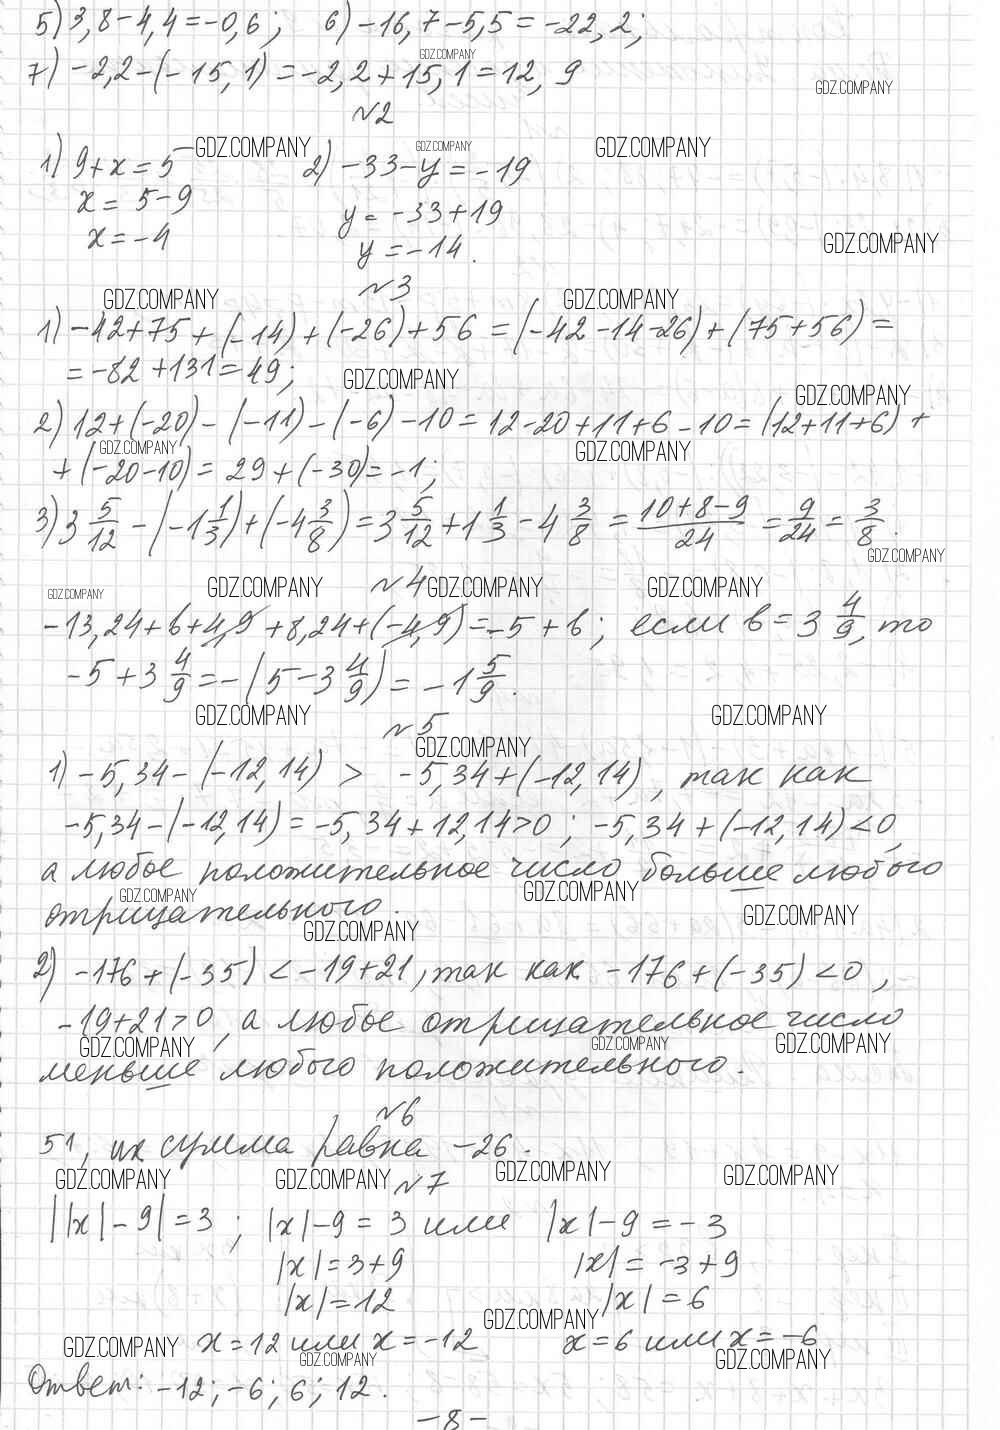 5) 3,8-4,4=-0,6; 6) -16,7-5,5=-22,2;
GDZ.COMPANY
7) -2,2-(-15,1)=-2,2+15,1=12,9
GDZ.COMPANY
№2
1) 9+x=5 GDZ.COMPANY 2) -33-y=-19 GDZ.COMPANY GDZ.COMPANY
x=5-9 y=-33+19
x=-4 y=-14. GDZ.COMPANY
№3
GDZ.COMPANY GDZ.COMPANY
1) -42+75+(-14)+(-26)+56=(-42-14-26)+(75+56)=
=-82+131=49; GDZ.COMPANY GDZ.COMPANY
2) 12+(-20)-(-11)-(-6)-10=12-20+11+6-10=(12+11+6)+
GDZ.COMPANY GDZ.COMPANY
+(-20-10)=29+(-30)=-1;
3) 3 5/12-(-1 1/3)+(-4 3/8)=3 5/12+1 1/3-4 3/8=(10+8-9)/24=9/24=3/8.
GDZ.COMPANY
GDZ.COMPANY GDZ.COMPANY №4 GDZ.COMPANY GDZ.COMPANY
-13,24+b+4,9+8,24+(-4,9)=-5+b; если b=3 4/9, то
-5+3 4/9=-(5-3 4/9)=-1 5/9.
GDZ.COMPANY №5 GDZ.COMPANY
GDZ.COMPANY
1) -5,34-(-12,14) > -5,34+(-12,14), так как
-5,34-(-12,14)=-5,34+12,14>0; -5,34+(-12,14)<0,
а любое положительное число больше любого
GDZ.COMPANY GDZ.COMPANY
отрицательного. GDZ.COMPANY
GDZ.COMPANY
2) -176+(-35)<-19+21, так как -176+(-35)<0,
-19+21>0, а любое отрицательное число
GDZ.COMPANY GDZ.COMPANY GDZ.COMPANY
меньше любого положительного.
№6
51, их сумма равна -26.
GDZ.COMPANY GDZ.COMPANY №7 GDZ.COMPANY GDZ.COMPANY
||x|-9|=3; |x|-9=3 или |x|-9=-3
|x|=3+9 |x|=-3+9
|x|=12 |x|=6
GDZ.COMPANY
GDZ.COMPANY x=12 или x=-12 x=6 или x=-6
GDZ.COMPANY GDZ.COMPANY
Ответ: -12; -6; 6; 12.
-8-